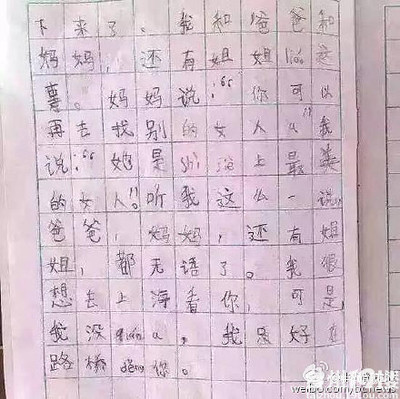 下来了。我和爸爸和
妈妈，还有姐姐 这
事。妈妈说：“你可以
再去找别的女人a”我
说：“她是shì 上最美
的女人”。听我这么一说，
爸爸，妈妈，还有姐
姐，都无语了。我很
想去上海看你，可是，
我没qián a。我只好在
路桥děng你。
19楼